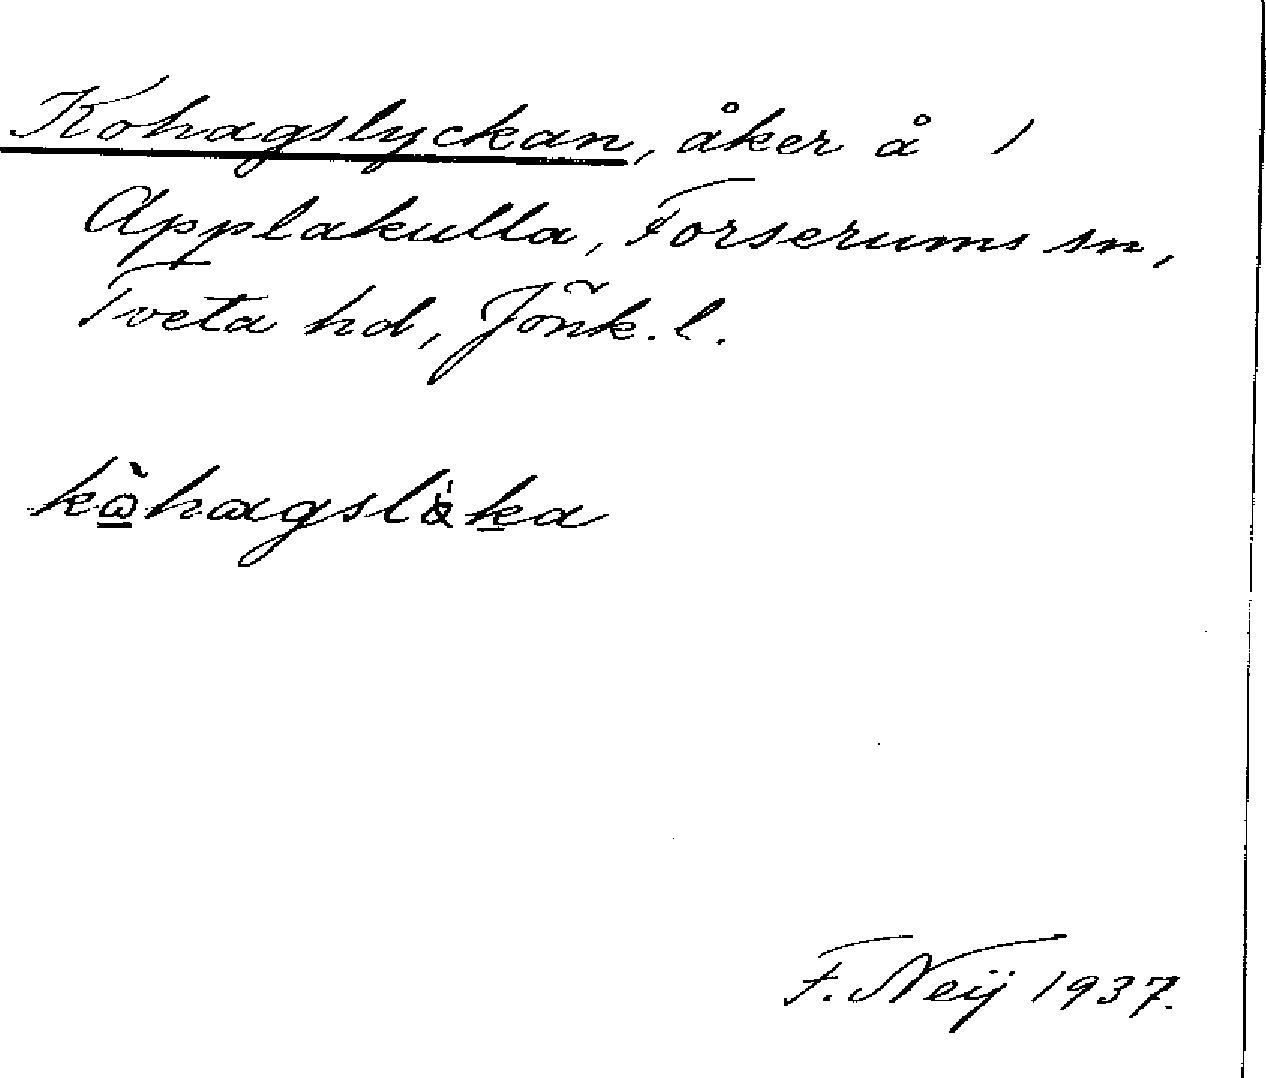 Kohagslyckan, åker å /
Applakulla, Forserums sn,
Tveta hd, Jönk. l.
kὼ̲hagslö̀k̲a
F. Neij 1937.